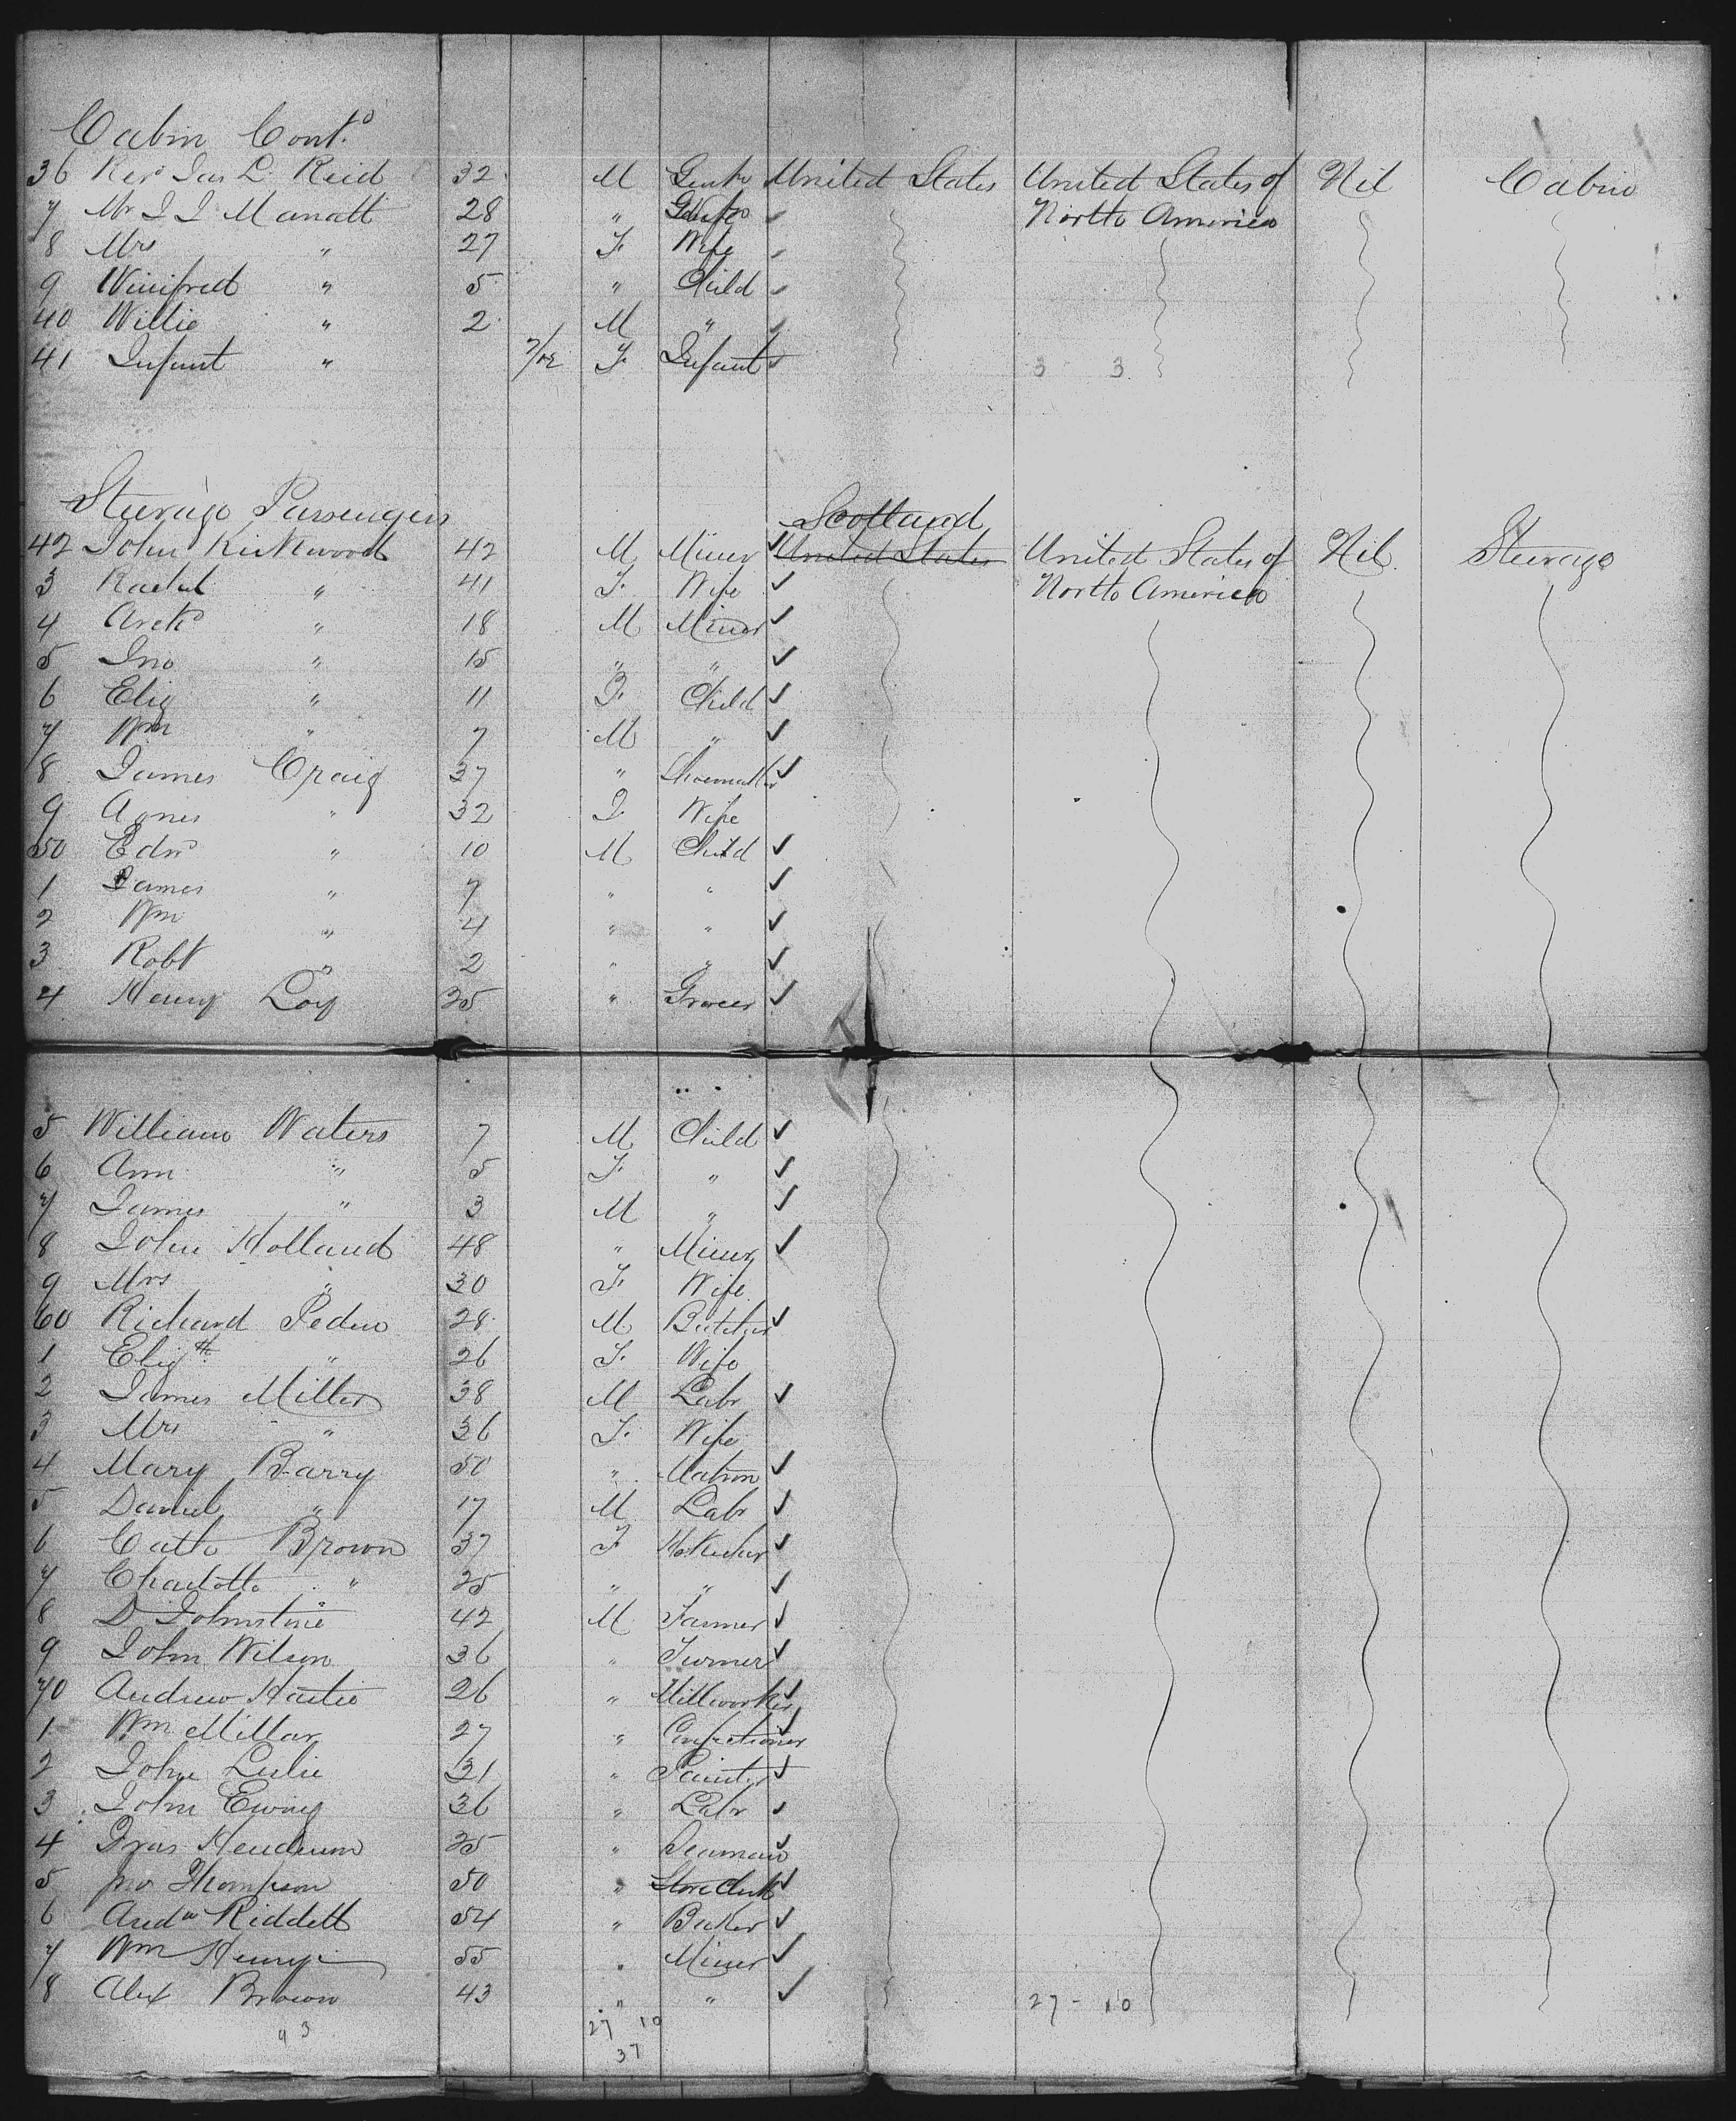 Cabin Contd
36 Revd Jas L. Reid 32 M Gentn United States United States of Nil Cabin
7 Mr J J Manatt 28 " North America
8 Mrs " 27 F. Wife
9 Winifred " 5 " Child
40 Willie " 2 M "
41 Infant " 7/12 F. Infant 3 3
Steerage Passengers Scotland
42 John Kirkwood 42 M Miner United States United States of Nil Steerage
3 Rachel " 41 F. Wife North America
4 Archd " 18 M Miner
5 Jno " 15 " "
6 Eliz " 11 F. Child
7 Wm " 7 M "
8 James Craig 37 " Shoemaker
9 Agnes " 32 F Wife
50 Edwd " 10 M Child
1 James " 7 " "
2 Wm " 4 " "
3 Robt " 2 " "
4 Henry Loy 25 " Grocer
5 William Waters 7 M Child
6 Ann " 5 F. "
7 James " 3 M "
8 John Holland 48 " Miner
9 Mrs " 30 F. Wife
60 Richard Peden 28 M Butcher
1 Elizth " 26 F. Wife
2 James Miller 38 M Labr
3 Mrs " 36 F. Wife
4 Mary Barry 50 " Matron
5 Daniel " 17 M Labr
6 Cath Brown 37 F Ho. Keeper
7 Charlotte " 25 " "
8 D Johnstone 42 M Farmer
9 John Wilson 36 " Turner
70 Andrew Hastie 26 " Millworker
1 Wm Millar 27 " Confectioner
2 John Leslie 31 " Painter
3 John Ewing 36 " Labr
4 Fras Henderson 25 " Seaman
5 Jno Thompson 50 " Store Clerk
6 Andw Riddell 54 " Baker
7 Wm Henry 55 " Miner
8 Alex Brown 43 " " 27 - 10
27 10
37